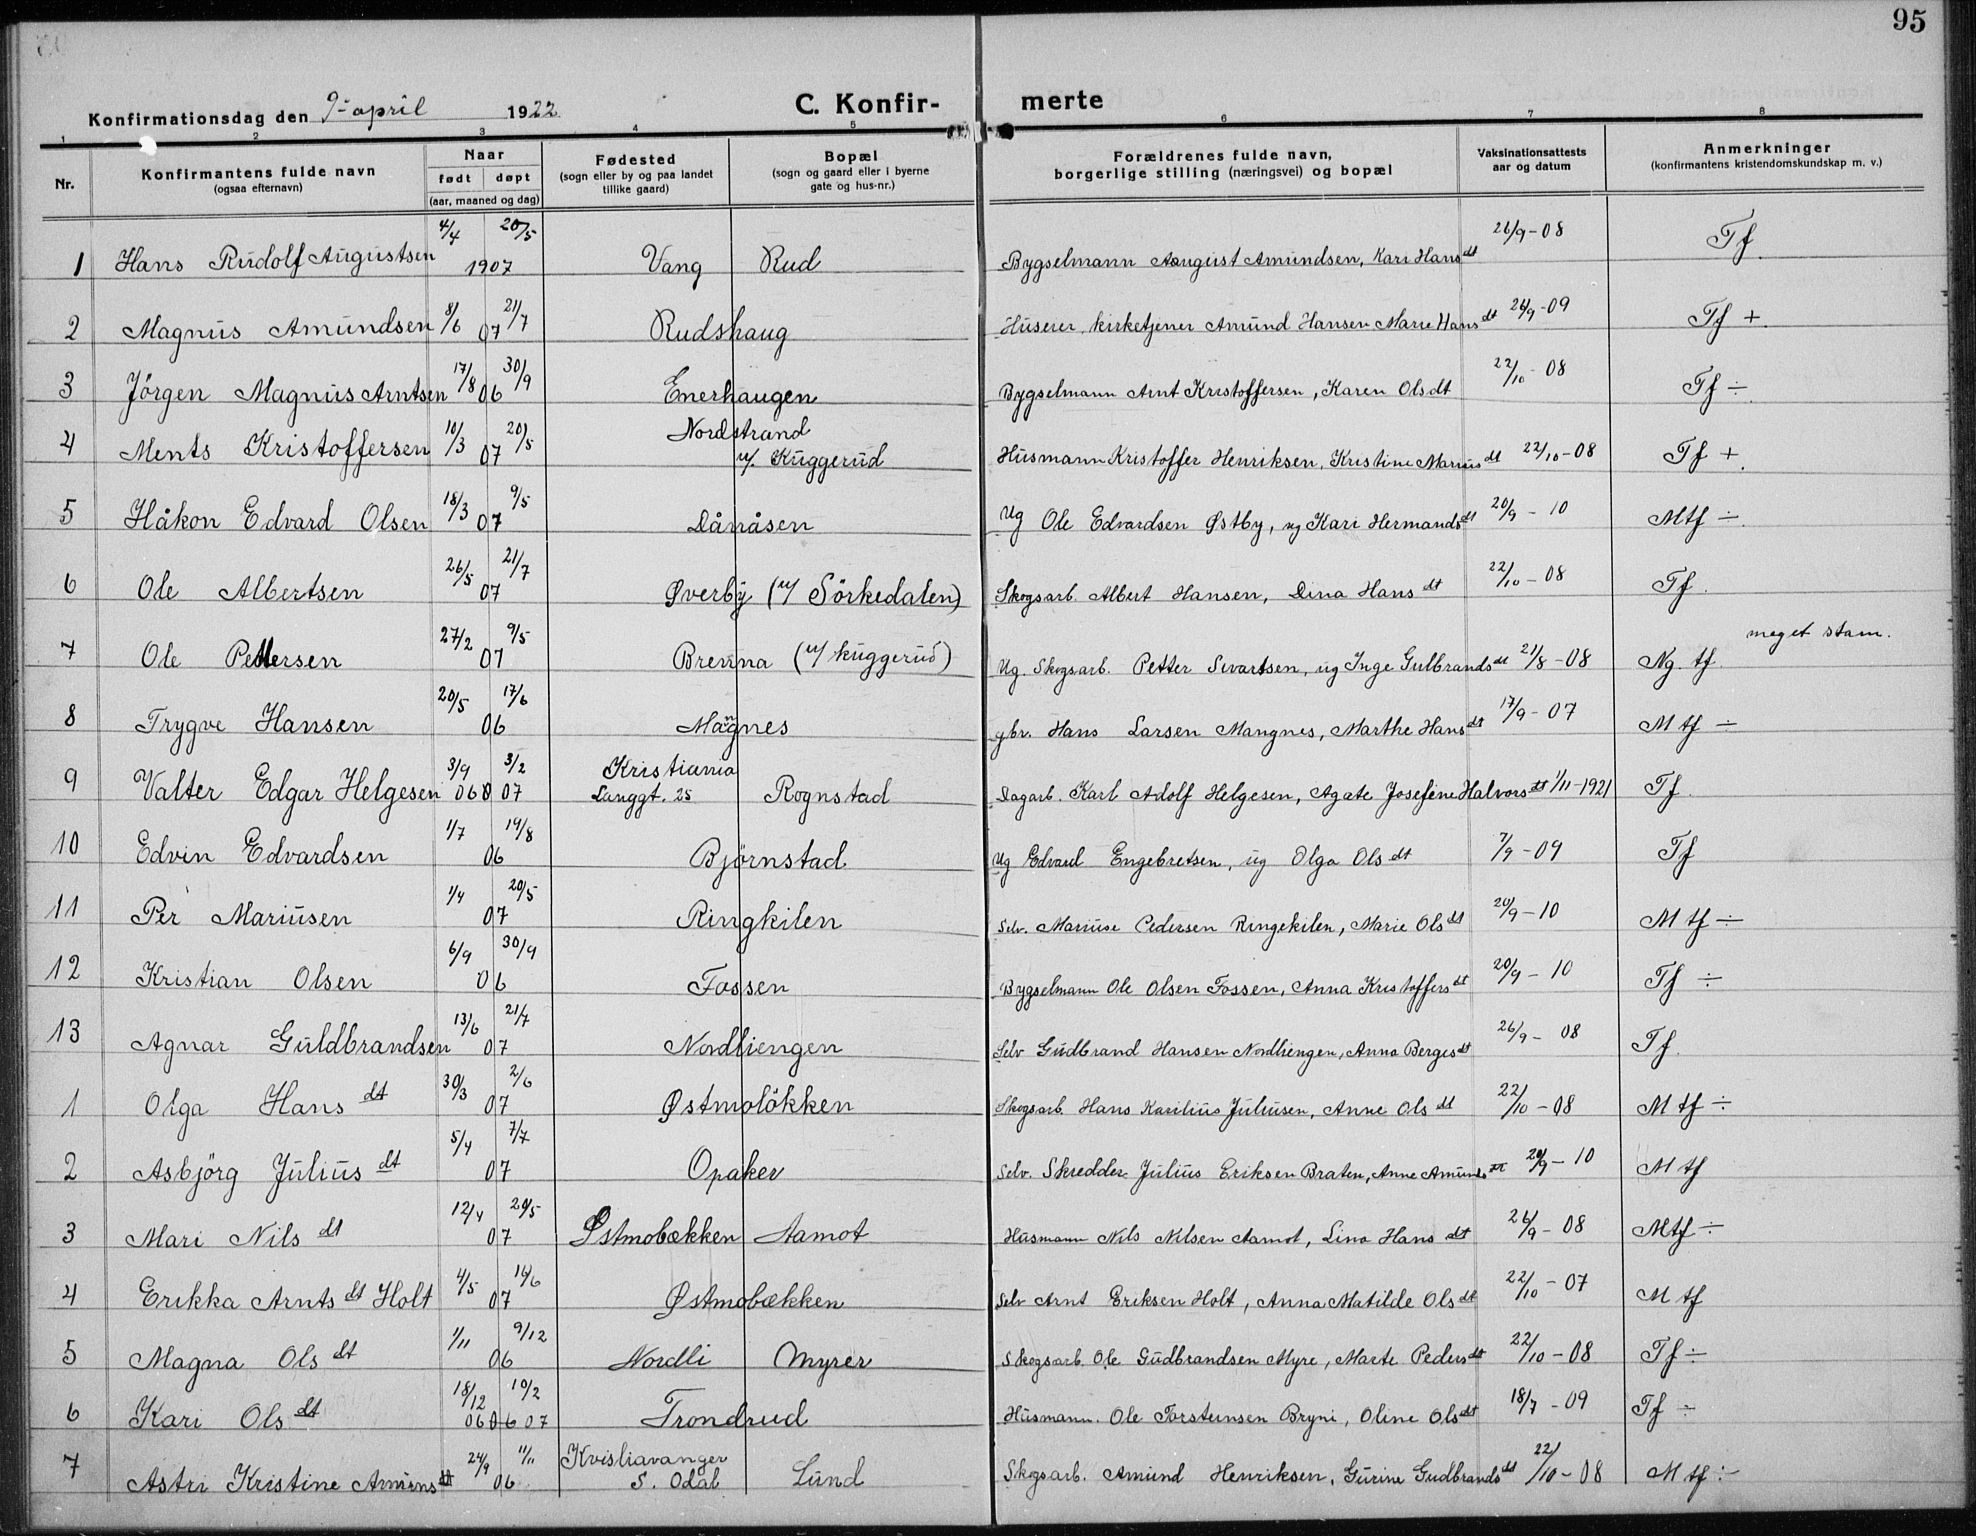 95
Konfirmationsdag den 9de april 1922 C. Konfir- merte
1 2 3 4 5 6 7 8
Nr. Konfirmantens fulde navn (ogsaa efternavn) Naar født døpt (aar, maaned og dag) Fødested (sogn eller by og paa landet tillike gaard) Bopæl (sogn og gaard eller i byerne gate og hus-nr.) Forældrenes fulde navn, borgerlige stilling (næringsvei) og bopæl Vaksinationsattests aar og datum Anmerkninger (konfirmantens kristendomskundskap m. v.)
1 Hans Rudolf Augustsen 4/4 20/5 1907 Vang Rud Bygselmann August Amundsen, Kari Hansdt 26/9-08 Tf.
2 Magnus Amundsen 8/6 21/7 07 Rudshaug Huseier, kirketjener Amund Hansen Marie Hansdt 26/9-09 Tf +.
3 Jörgen Magnus Arntsen 17/8 30/9 06 Enerhaugen Bygselmann Arnt Kristoffersen, Karen Olsdt 22/10-08 Tf ÷.
4 Ments Kristoffersen 10/3 20/5 07 Nordstrand u/. Kuggerud Husmann Kristoffer Henriksen, Kristine Mariusdt 22/10-08 Tf +.
5 Håkon Edvard Olsen 18/3 9/5 07 Dånåsen Ug Ole Edvardsen Østby, ug Kari Hermandsdt 20/9-10 Mtf ÷.
6 Ole Albertsen 26/5 21/7 07 Øverby (u/ Sörkedalen) Skogsarb. Albert Hansen, Dina Hansdt 22/10-08 Tf.
7 Ole Pettersen 27/2 9/5 07 Brenna (u/ Kuggerud) Ug. Skogsarb. Petter Sivartsen, ug Inge Gulbrandsdt 21/8-08 Ng. tf. meget stam.
8 Trygve Hansen 20/5 17/6 06 Mangnes gbr. Hans Larsen Mangnes, Marthe Hansdt 17/9-07 M tf ÷
9 Valter Edgar Helgesen 3/9 3/2 06 07 Kristiania Langgt. 25 Rognstad Dagarb. Karl Adolf Helgesen, Agate Josefine Halvorsdt 1/11-1921 Tf.
10 Edvin Edvardsen 1/7 19/8 06 Björnstad Ug Edvard Engebretsen, ug Olga Olsdt 7/9-09 Tf
11 Per Mariusen 1/4 20/5 07 Ringkilen Selv. Mariuse Pedersen Ringekilen, Marie Olsdt 20/9-10 M tf ÷
12 Kristian Olsen 6/9 30/9 06 Fossen Bygselmann Ole Olsen Fossen, Anna Kristoffersdt 20/9-10 Tf ÷
13 Agnar Guldbrandsen 13/6 21/7 07 Nordliengen Selv Gudbrand Hansen Nordliengen, Anna Bergesdt 26/9-08 Tf.
1 Olga Hansdt 30/3 2/6 07 Østmolökken Skogsarb. Hans Karilius Juliusen, Anne Olsdt 22/10-08 M tf ÷
2 Asbjörg Juliusdt 5/4 7/7 07 Opaker Selv. Skredder Julius Eriksen Braten, Anne Amundsdt 20/9-10 M tf
3 Mari Nilsdt 12/4 20/5 07 Østmobækken Aamot Husmann Nils Nilsen Aamot, Lina Hansdt 26/9-08 Mtf ÷
4 Erikka Arntsdt Holt 4/5 16/6 07 Østmobækken Selv Arnt Eriksen Holt, Anna Matilde Olsdt 22/10-07 M tf
5 Magna Olsdt 1/11 9/12 06 Nordli Myrer Skogsarb. Ole Gudbrandsen Myre, Marte Pedersdt 22/10-08 Tf ÷
6 Kari Olsdt 18/12 10/2 06 07 Trondrud Husmann. Ole Torsteinsen Bryni, Oline Olsdt 18/7-09 Tf ÷
7 Astri Kristine Amunsdt 24/9 11/11 06 Kvisliavanger S. Odal Lund Skogsarb. Amund Henriksen, Gurine Gudbrandsdt 22/10-08 M tf ÷